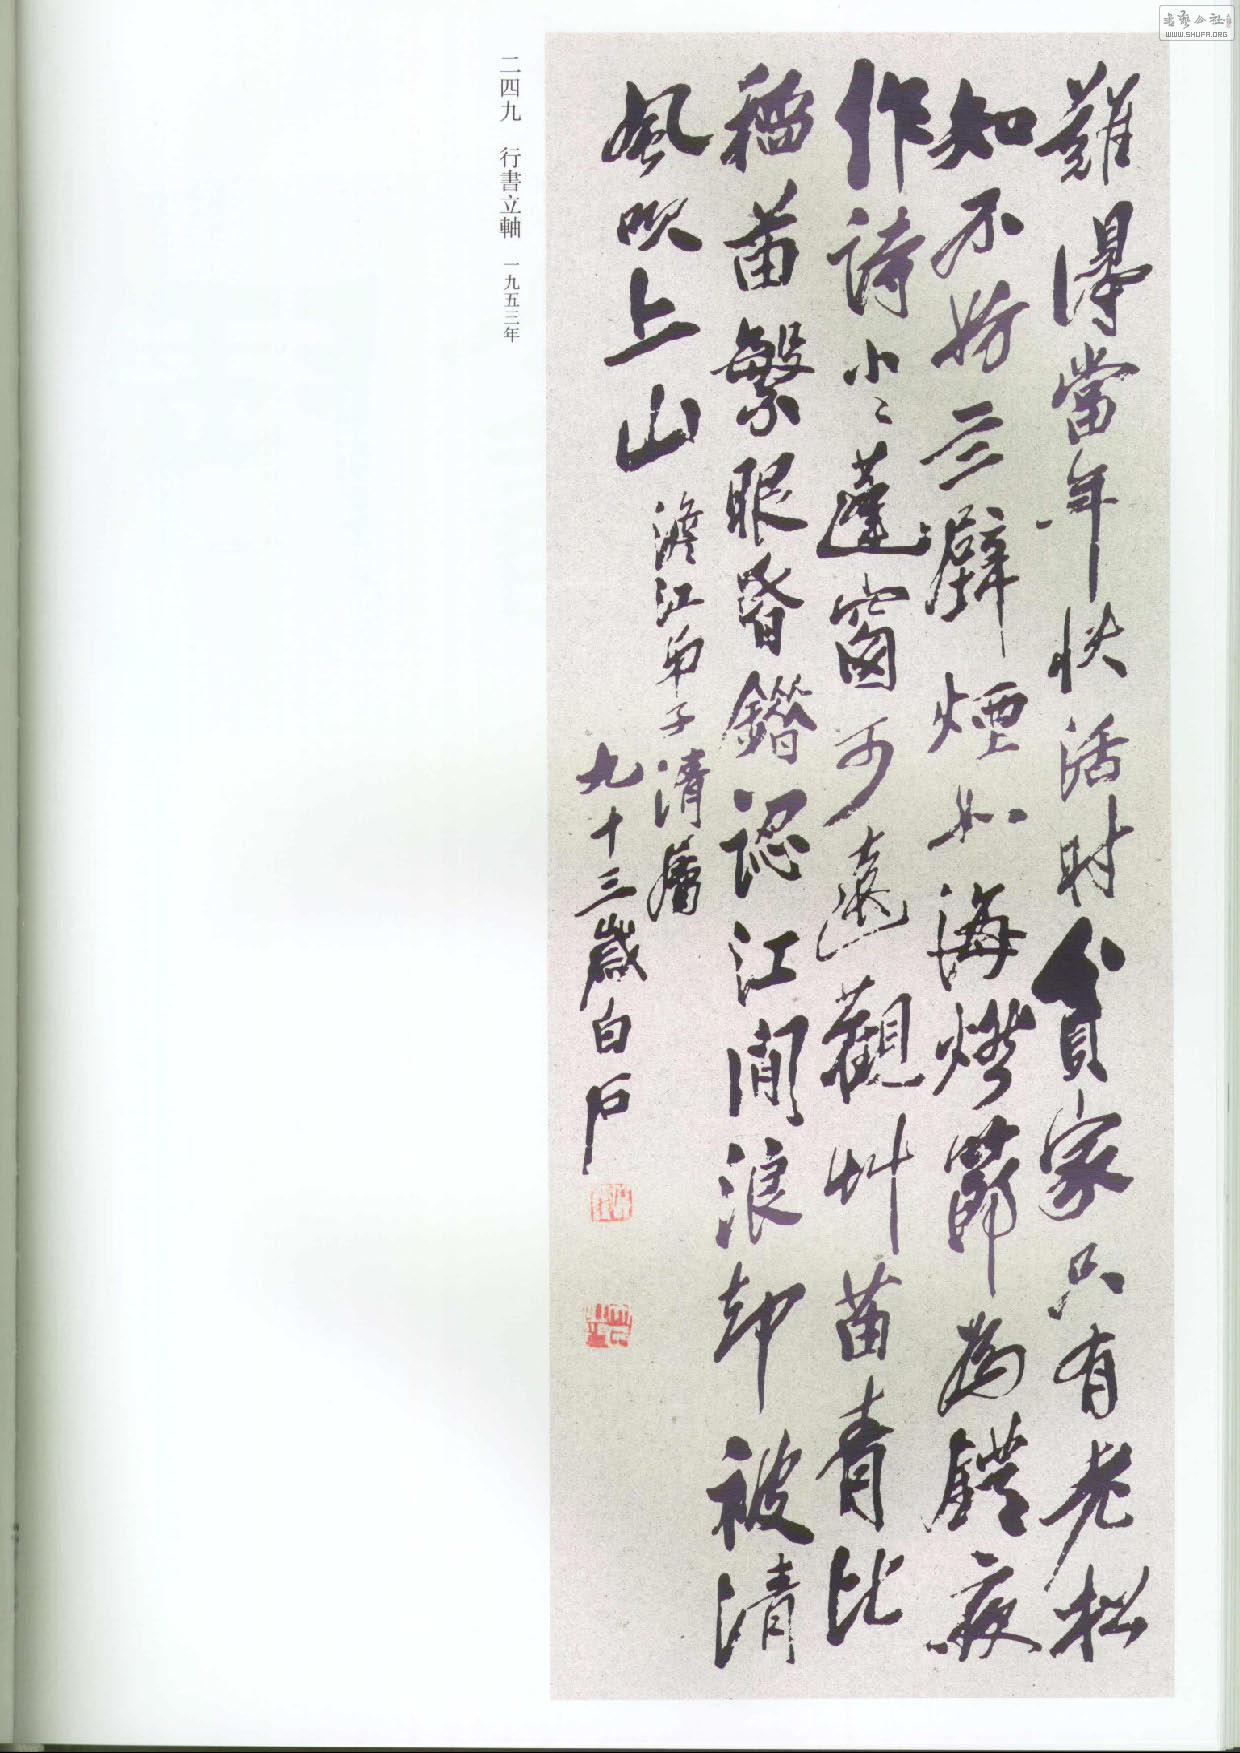 難得當年快活時貧家只有老松
知不妨三壁煙如海燃節為體夜
作詩小〻蓬窗可遠觀艸苗青比
稻苗繁眼昏錯認江間浪却被清
風吹上山
澹江弟子清屬
九十三歲白石
二四九 行書立軸 一九五三年
WWW.SHUFA.ORG